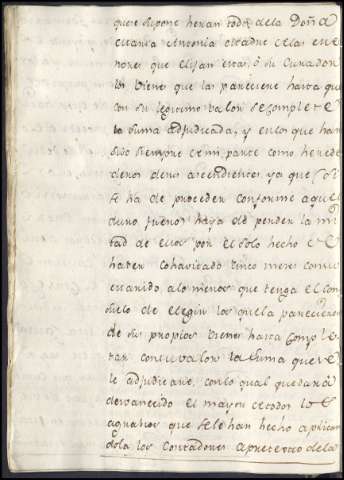 que se supone heran todos de la Doña
Maria Antonia madre de las me
nores que elijan estas, o su Curador
los vienes que las pareciere hasta que
con su lexitimo valor se complete
la suma adjudicada, y en los que han
sido siempre de mi parte como herede
deros de sus ascendientes, ya que
se ha de proceder conforme a aquel
duro fuero haya de perder la mi
tad de ellos por el solo hecho de
haver cohavitado cinco meses con su
marido, a lo menos que tenga el con
suelo de elegir los que la parecieren
de sus propios vienes hasta comple
tar con su valor la suma que se
le adjudicare, con lo qual quedará
desvanecido el mayor de todos los
agravios que se le han hecho aplican
dola los Contadores a pretexto de la